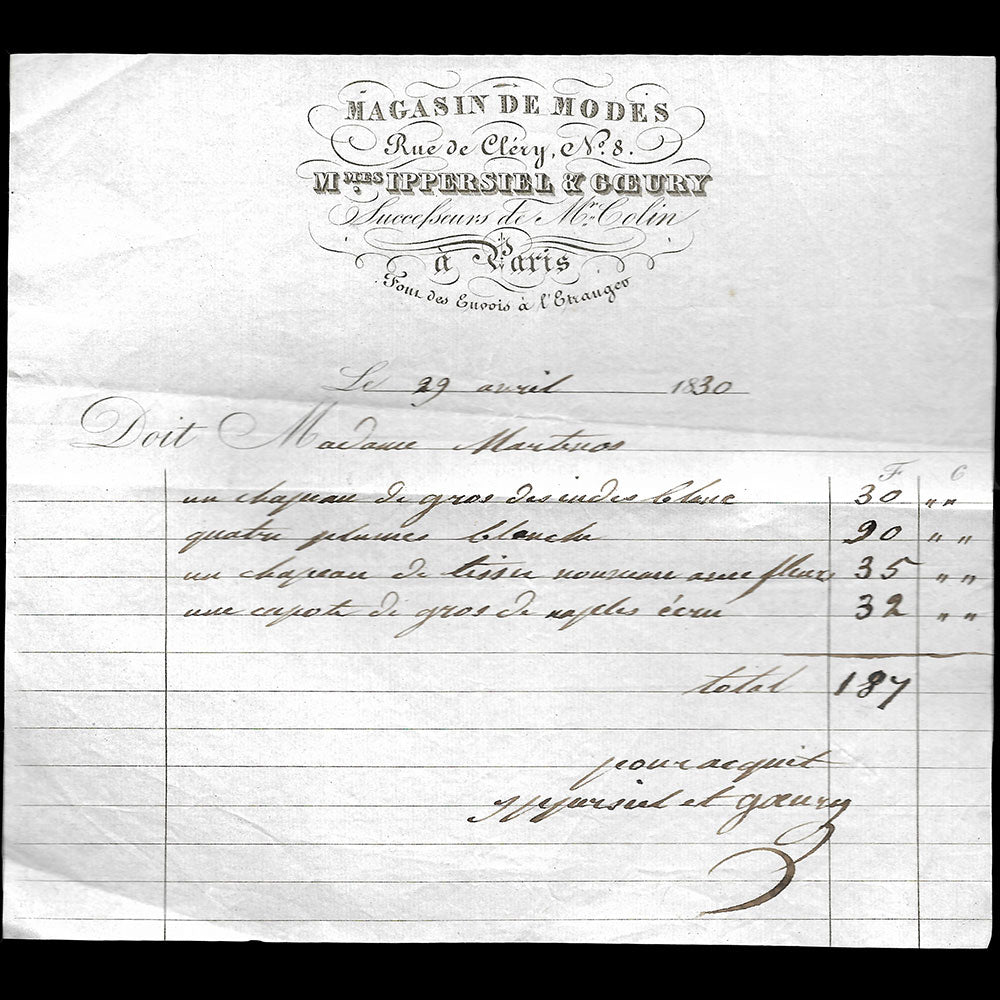 MAGASIN DE MODES
Rue de Cléry, N.º 8.
M.MES IPPERSIEL & GŒURY
Successeurs de M.r Colin
à Paris
Font des Envois à l'Etranger
Le 29 avril 1830
Doit Madame
F C
un chapeau de gros des indes blanc 30 " "
quatre plumes blanche 90 " "
un chapeau de tissu nouveau avec fleurs 35 " "
une capote de gros de naples écru 32 " "
total 187
pour acquit
ippersiel et gœury